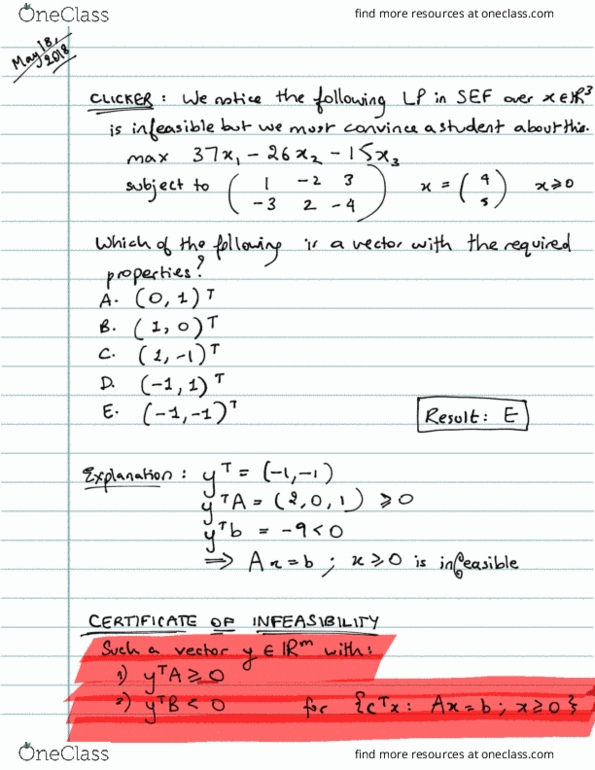 OneClass
find more resources at oneclass.com
May 18,
2018
CLICKER: We notice the following LP in SEF over x ∈ ℝ³
is infeasible but we must convince a student about this.
max 37x₁ - 26x₂ - 15x₃
subject to ( 1 -2 3 ) x = ( 4 ) x ≥ 0
( -3 2 -4 ) ( 5 )
Which of the following is a vector with the required
properties?
A. (0, 1)ᵀ
B. (1, 0)ᵀ
C. (1, -1)ᵀ
D. (-1, 1)ᵀ
E. (-1, -1)ᵀ
Result: E
Explanation: yᵀ = (-1, -1)
yᵀA = (2, 0, 1) ≥ 0
yᵀb = -9 < 0
⇒ Ax = b ; x ≥ 0 is infeasible
CERTIFICATE OF INFEASIBILITY
Such a vector y ∈ ℝᵐ with:
1) yᵀA ≥ 0
2) yᵀB < 0 for {cᵀx : Ax = b ; x ≥ 0}
OneClass
find more resources at oneclass.com